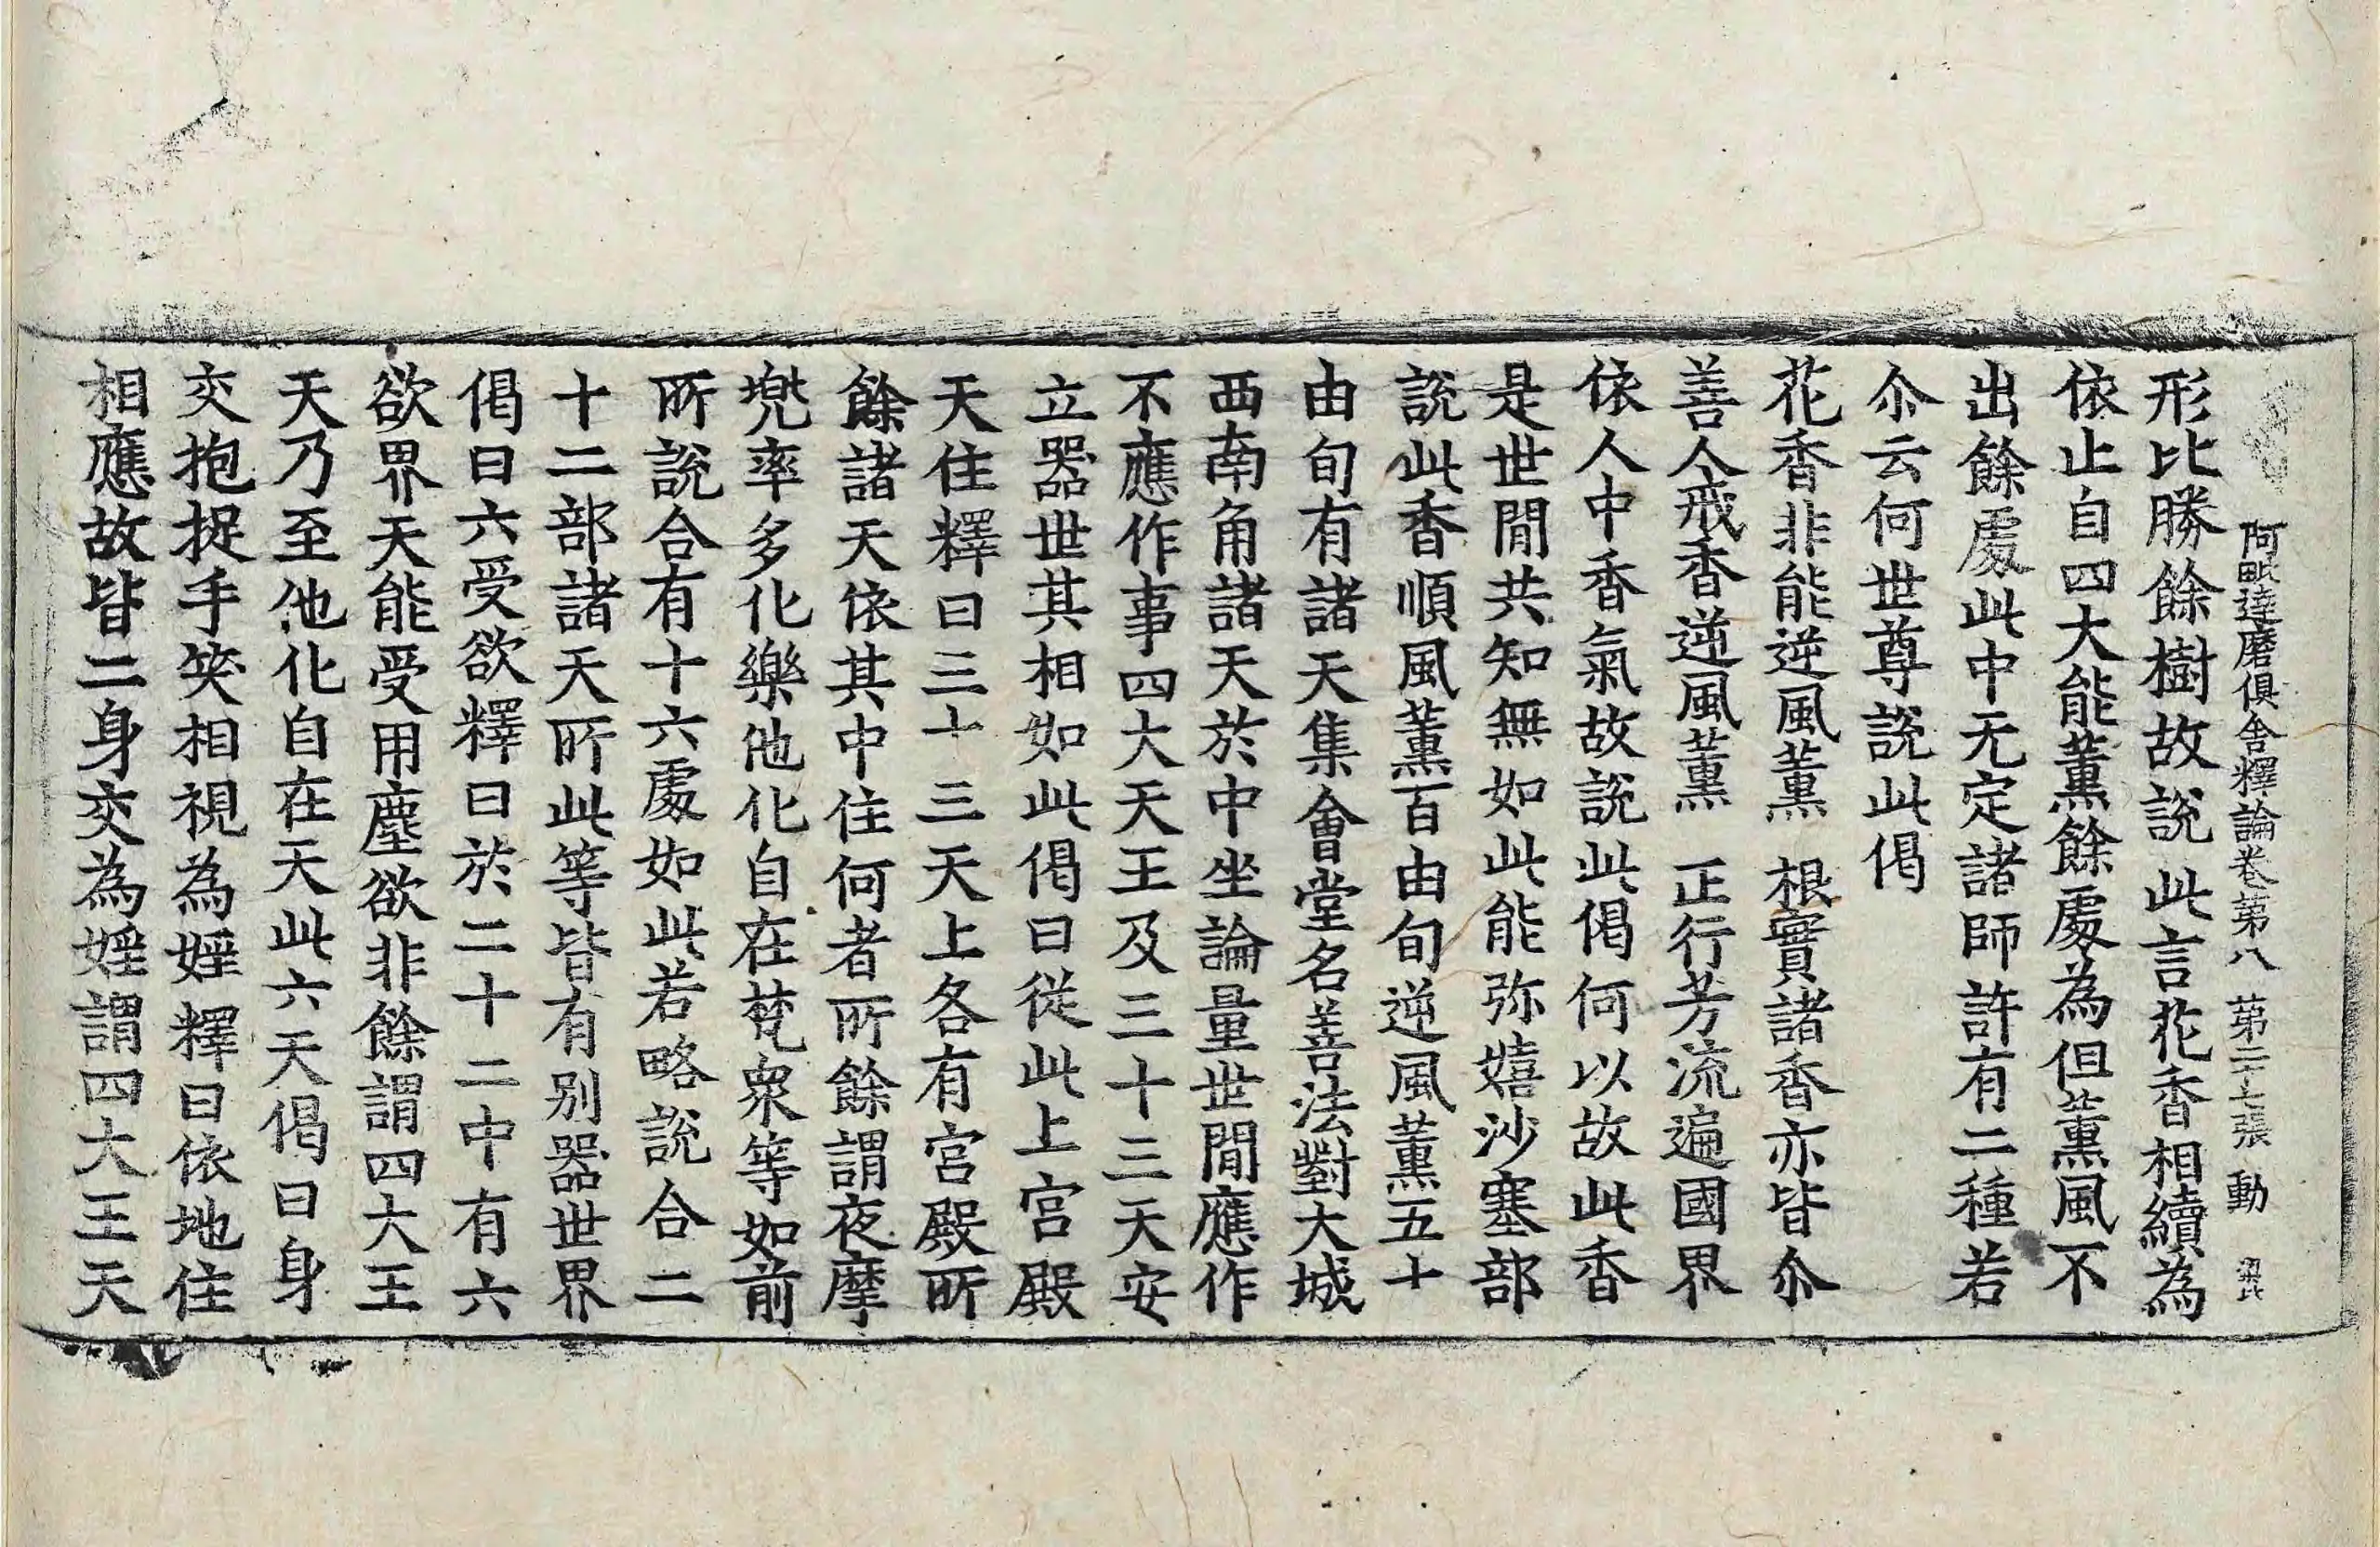 阿毗達磨俱舍釋論卷第八　第二十七張　動
形比勝餘樹故說此言花香相續為
依止自四大能薰餘處為但薰風不
出餘處此中无定諸師許有二種若
尒云何世尊說此偈
花香非能逆風薰　根實諸香亦皆尒
善人戒香逆風薰　正行芳流遍國界
依人中香氣故說此偈何以故此香
是世間共知無如此能弥嬉沙塞部
說此香順風薰百由旬逆風薰五十
由旬有諸天集會堂名善法對大城
西南角諸天於中坐論量世間應作
不應作事四大天王及三十三天安
立器世其相如此偈曰從此上宮殿
天住釋曰三十三天上各有宮殿所
餘諸天依其中住何者所餘謂夜摩
兜率多化樂他化自在梵衆等如前
所說合有十六處如此若略說合二
十二部諸天所此等皆有别器世界
偈曰六受欲釋曰於二十二中有六
欲界天能受用塵欲非餘謂四大王
天乃至他化自在天此六天偈曰身
交抱捉手笑相視為婬釋曰依地住
相應故皆二身交為婬謂四大王天